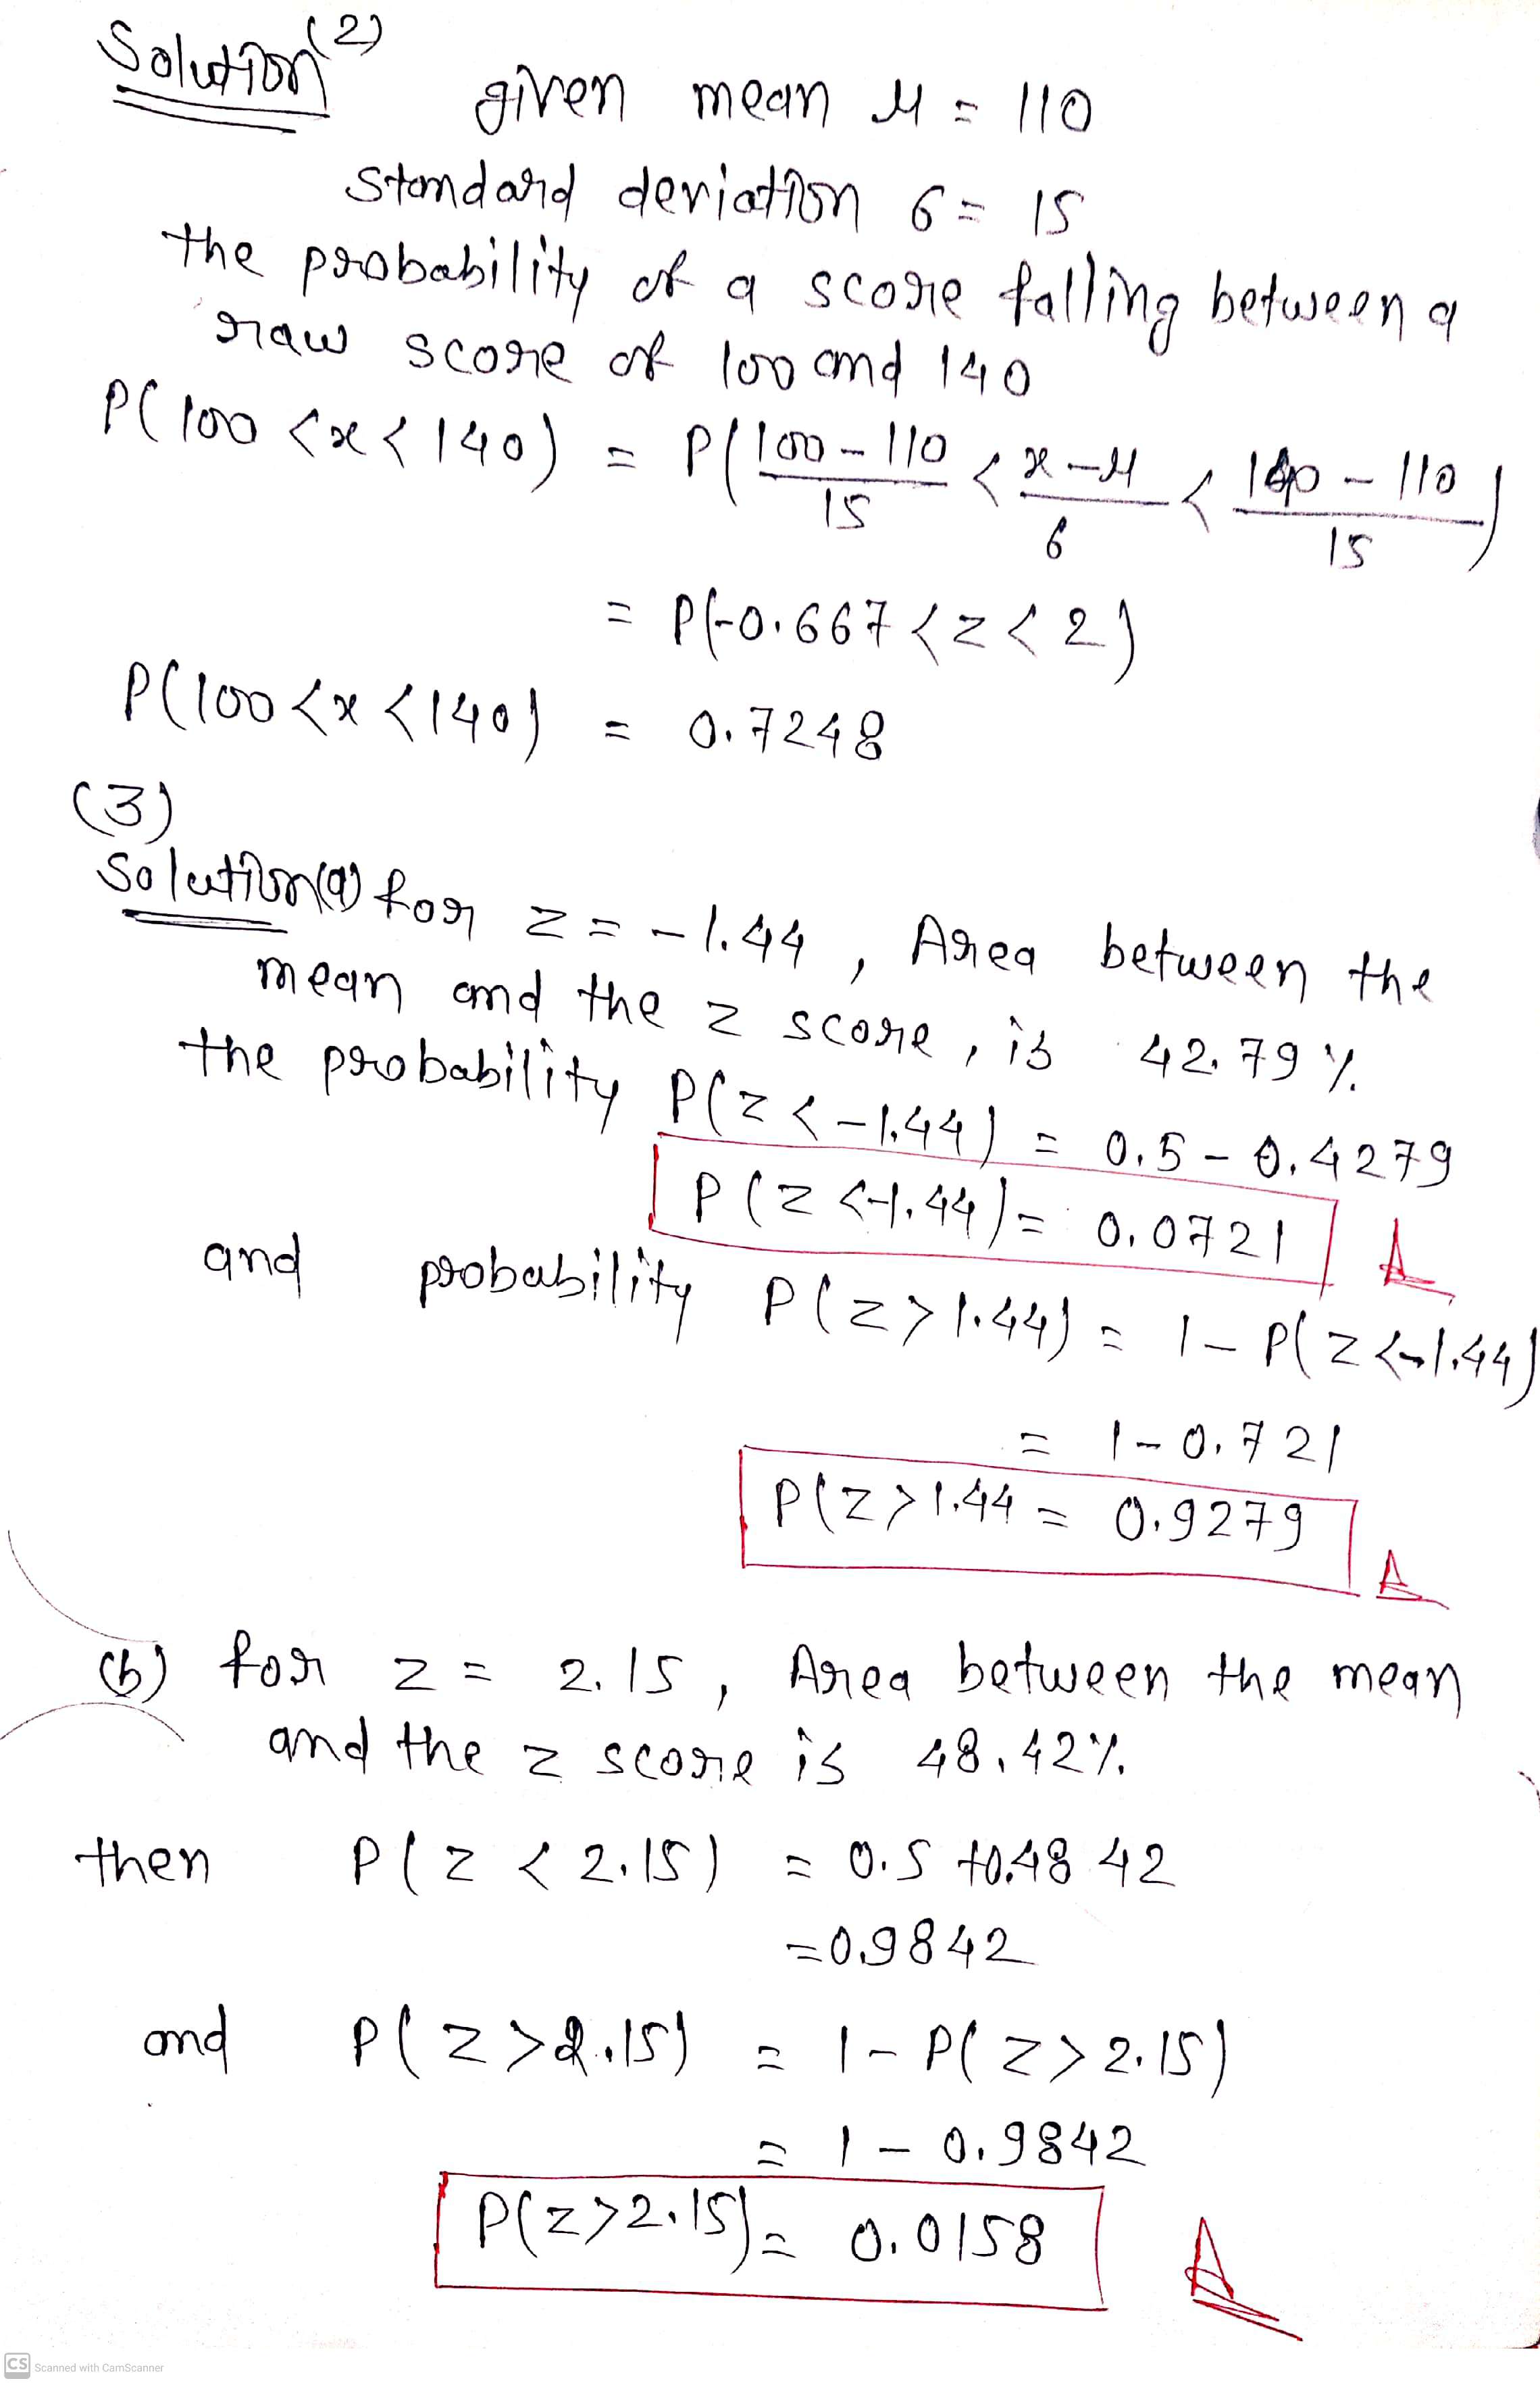 Solution (2)
given mean μ = 110
standard deviation σ = 15
the probability of a score falling between a
raw score of 100 and 140
P(100 < x < 140) = P(100 - 110 / 15 < x - μ / σ < 140 - 110 / 15)
= P(-0.667 < z < 2)
P(100 < x < 140) = 0.7248
(3)
Solution (a) for z = -1.44, Area between the
mean and the z score, is 42.79 %
the probability P(z < -1.44) = 0.5 - 0.4279
P(z < -1.44) = 0.0721
and probability P(z > 1.44) = 1 - P(z < -1.44)
= 1 - 0.721
P(z > 1.44 = 0.9279
(b) for z = 2.15, Area between the mean
and the z score is 48.42%
then P(z < 2.15) = 0.5 + 0.4842
= 0.9842
and P(z > 2.15) = 1 - P(z > 2.15)
= 1 - 0.9842
P(z > 2.15) = 0.0158
CS Scanned with CamScanner